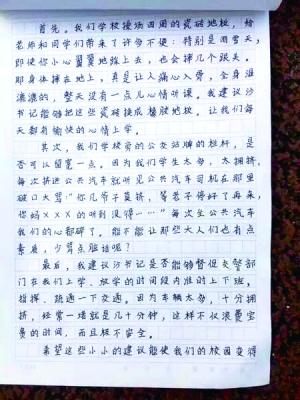 首先。我们学校操场四周的瓷砖地板，给
老师和同学们带来了许多不便：特别是雨雪天，
即使你小心翼翼地踩上去，也会摔几个跟头。
那身体摔在地上，真是让人痛心入骨，全身湿
漉漉的，整天没有一点儿心情听课。我建议沙
书记能够把这些瓷砖换成橡胶地板。让我们每
天都有愉快的心情上学。
其次，我们学校旁的公交站牌的栏杆，是
否可以留宽一点。因为我们学生太多，太拥挤，
每次挤进公共汽车就听见公共汽车司机在那里
破口大骂“你几爷子莫挤，等老子停好了再来，
你妈×××的听到没得……”每次坐公共汽车
我们的心都碎了。能不能让那些大人们也有点
素质，少骂点脏话呢？
最后，我建议沙书记是否能够督促交警部
门在我们上学、放学的时间段内准时上下班，
指挥、疏通一下交通。因为车辆太多，十分拥
挤，经常一堵就是几十分钟，这样不仅浪费宝
贵的时间，而且极不安全。
希望这些小小的建议能使我们的校园变得